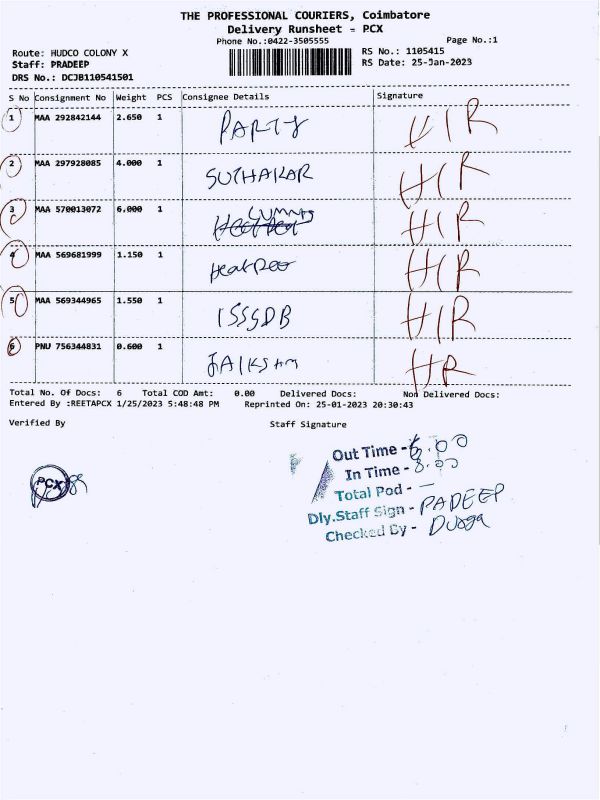 THE PROFESSIONAL COURIERS, Coimbatore
Delivery Runsheet - PCX
Phone No.:0422-3505555
Page No.:1
Route: HUDCO COLONY X
RS No.: 1105415
Staff: PRADEEP
RS Date: 25-Jan-2023
DRS No.: DCJB110541501
S No Consignment No Weight PCS Consignee Details Signature
1 MAA 292842144 2.650 1 PARTY HIR
2 MAA 297928085 4.000 1 SUTHAKAR HIR
3 MAA 570013072 6.000 1 HIR
4 MAA 569681999 1.150 1 HIR
5 MAA 569344965 1.550 1 ISSSDB HIR
6 PNU 756344831 0.600 1 HR
Total No. Of Docs: 6 Total COD Amt: 0.00 Delivered Docs: Non Delivered Docs:
Entered By :REETAPCX 1/25/2023 5:48:48 PM Reprinted On: 25-01-2023 20:30:43
Verified By Staff Signature
PCX
Out Time - 6.00
In Time - 8.00
Total Pod - —
Dly.Staff Sign - PADEEP
Checked By - Durga